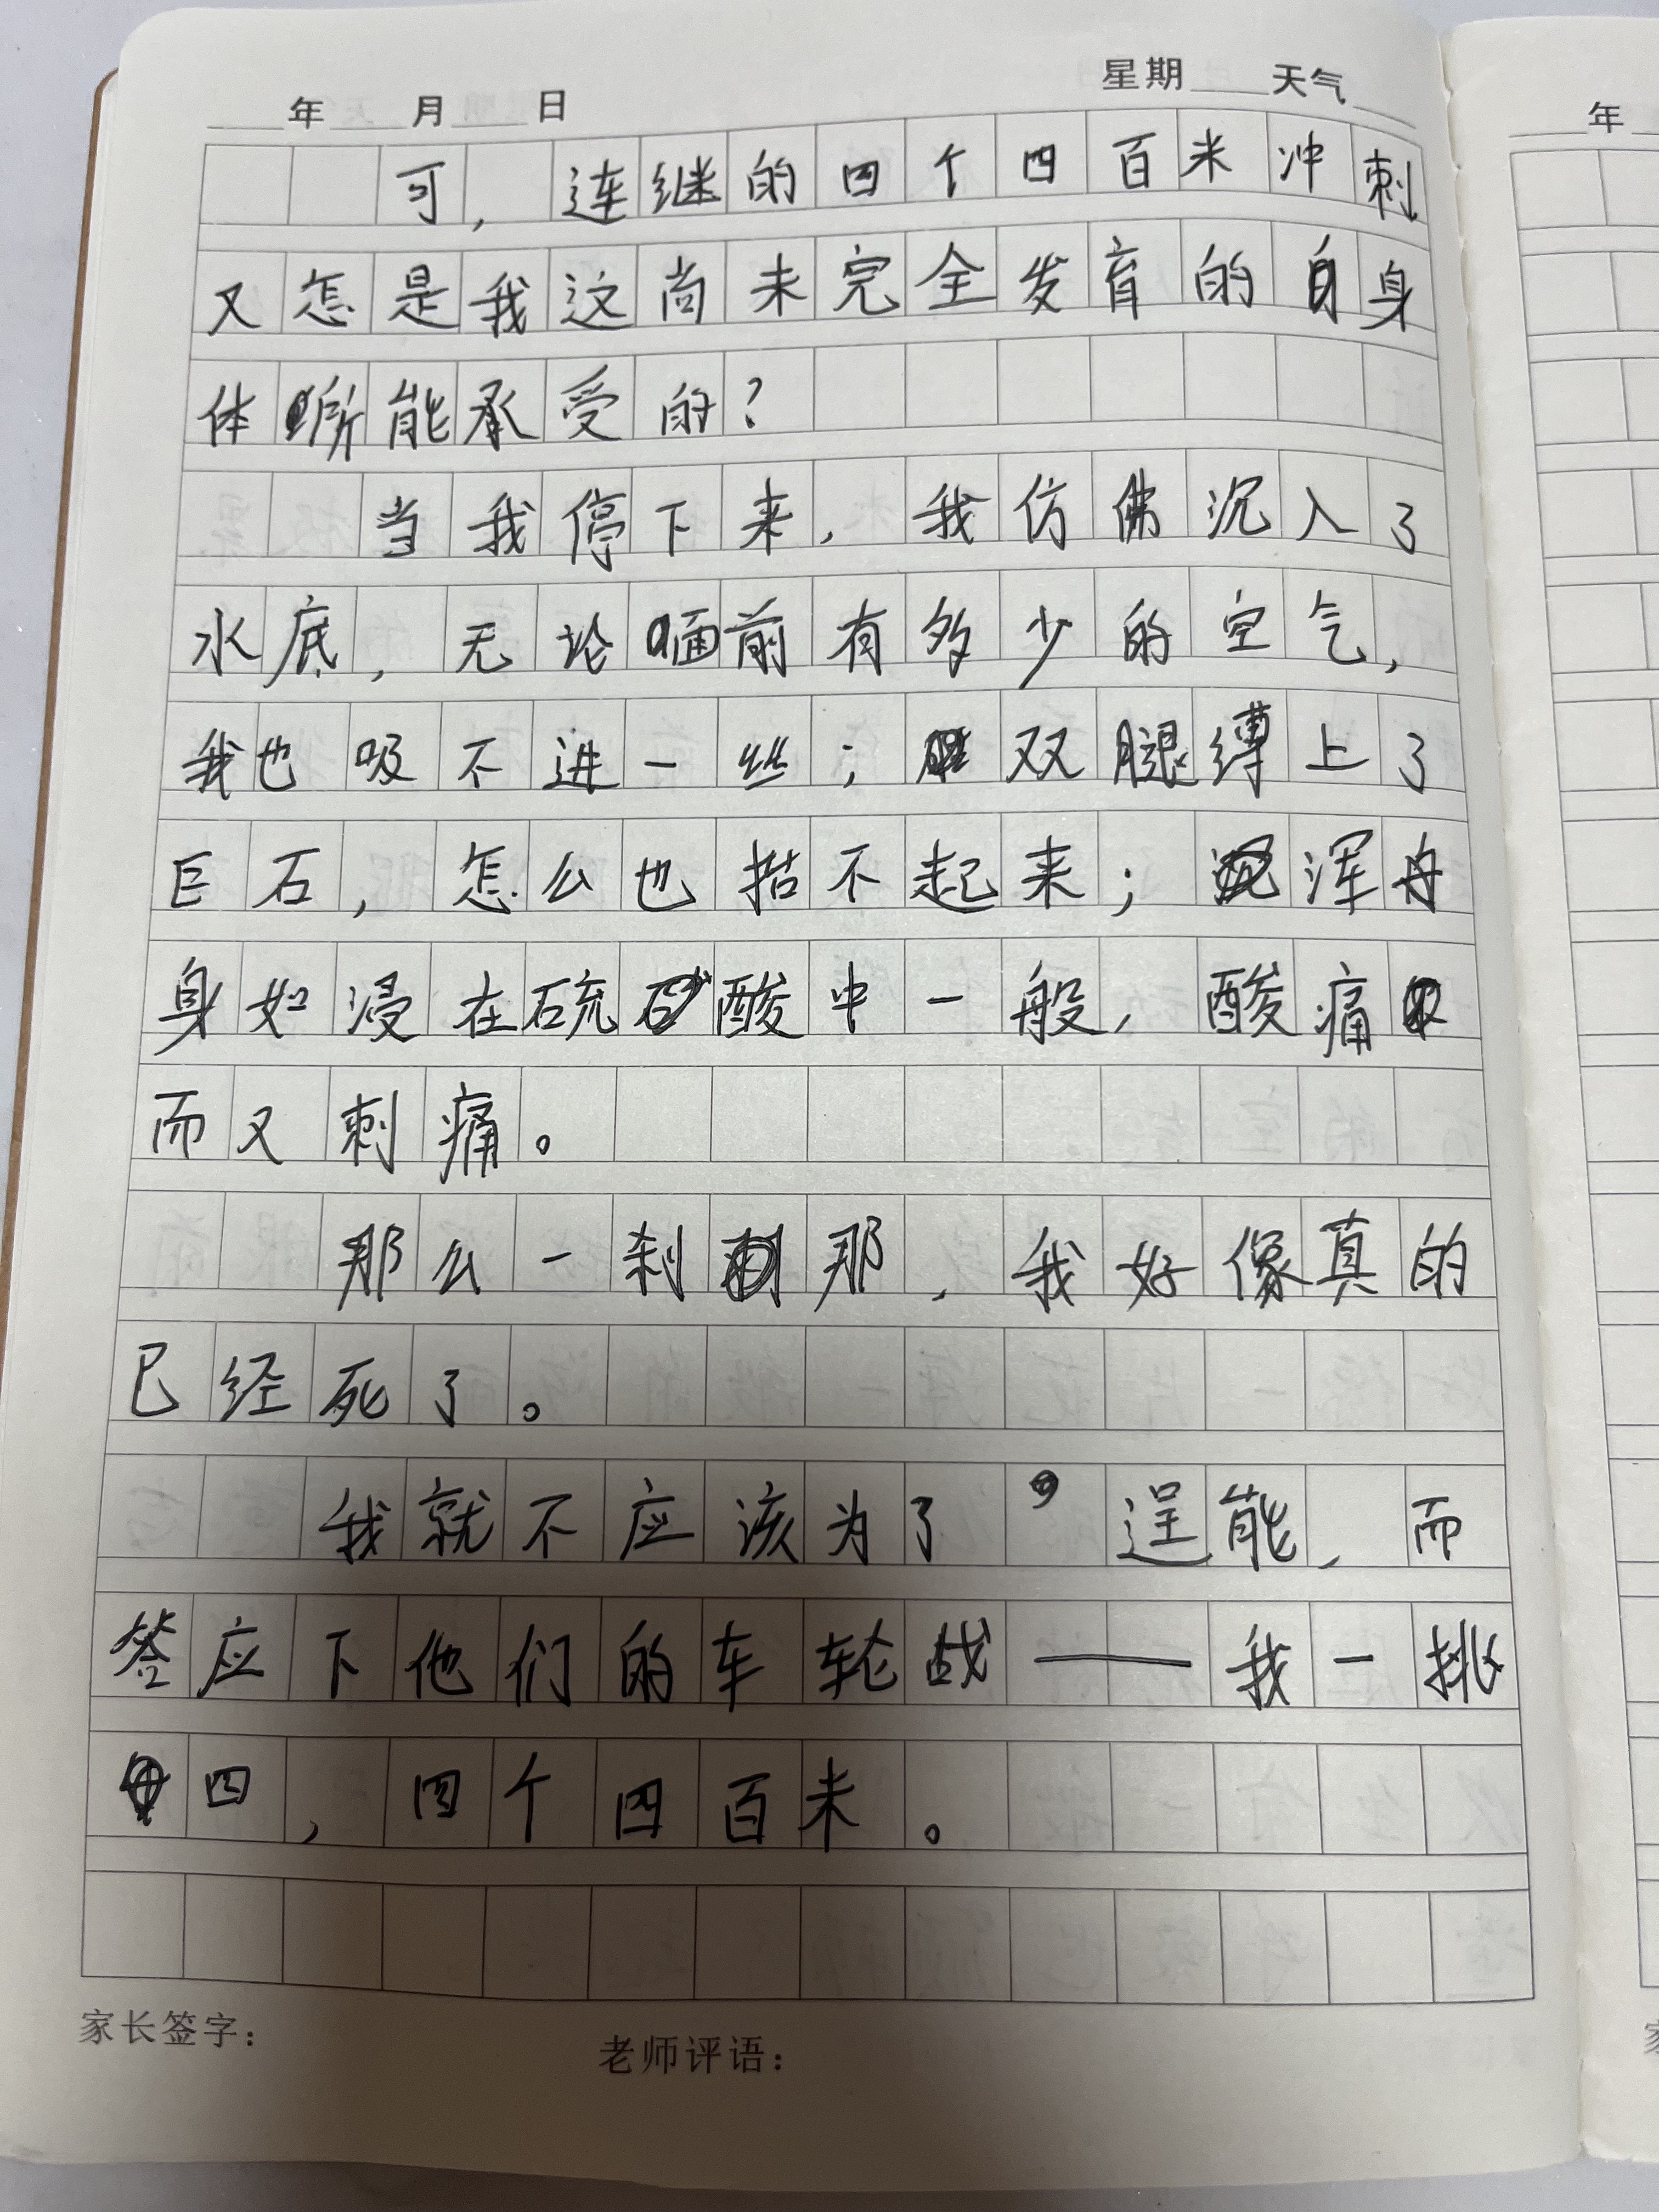 年 月 日 星期 天气
年
可，连继的四个四百米冲刺
又怎是我这尚未完全发育的身
体所能承受的？
当我停下来，我仿佛沉入了
水底，无论面前有多少的空气，
我也吸不进一丝；双腿缚上了
巨石，怎么也抬不起来；浑
身如浸在硫酸中一般，酸痛
而又刺痛。
那么一刹那，我好像真的
已经死了。
我就不应该为了逞能，而
答应下他们的车轮战——我一挑
四，四个四百米。
家长签字：
老师评语：